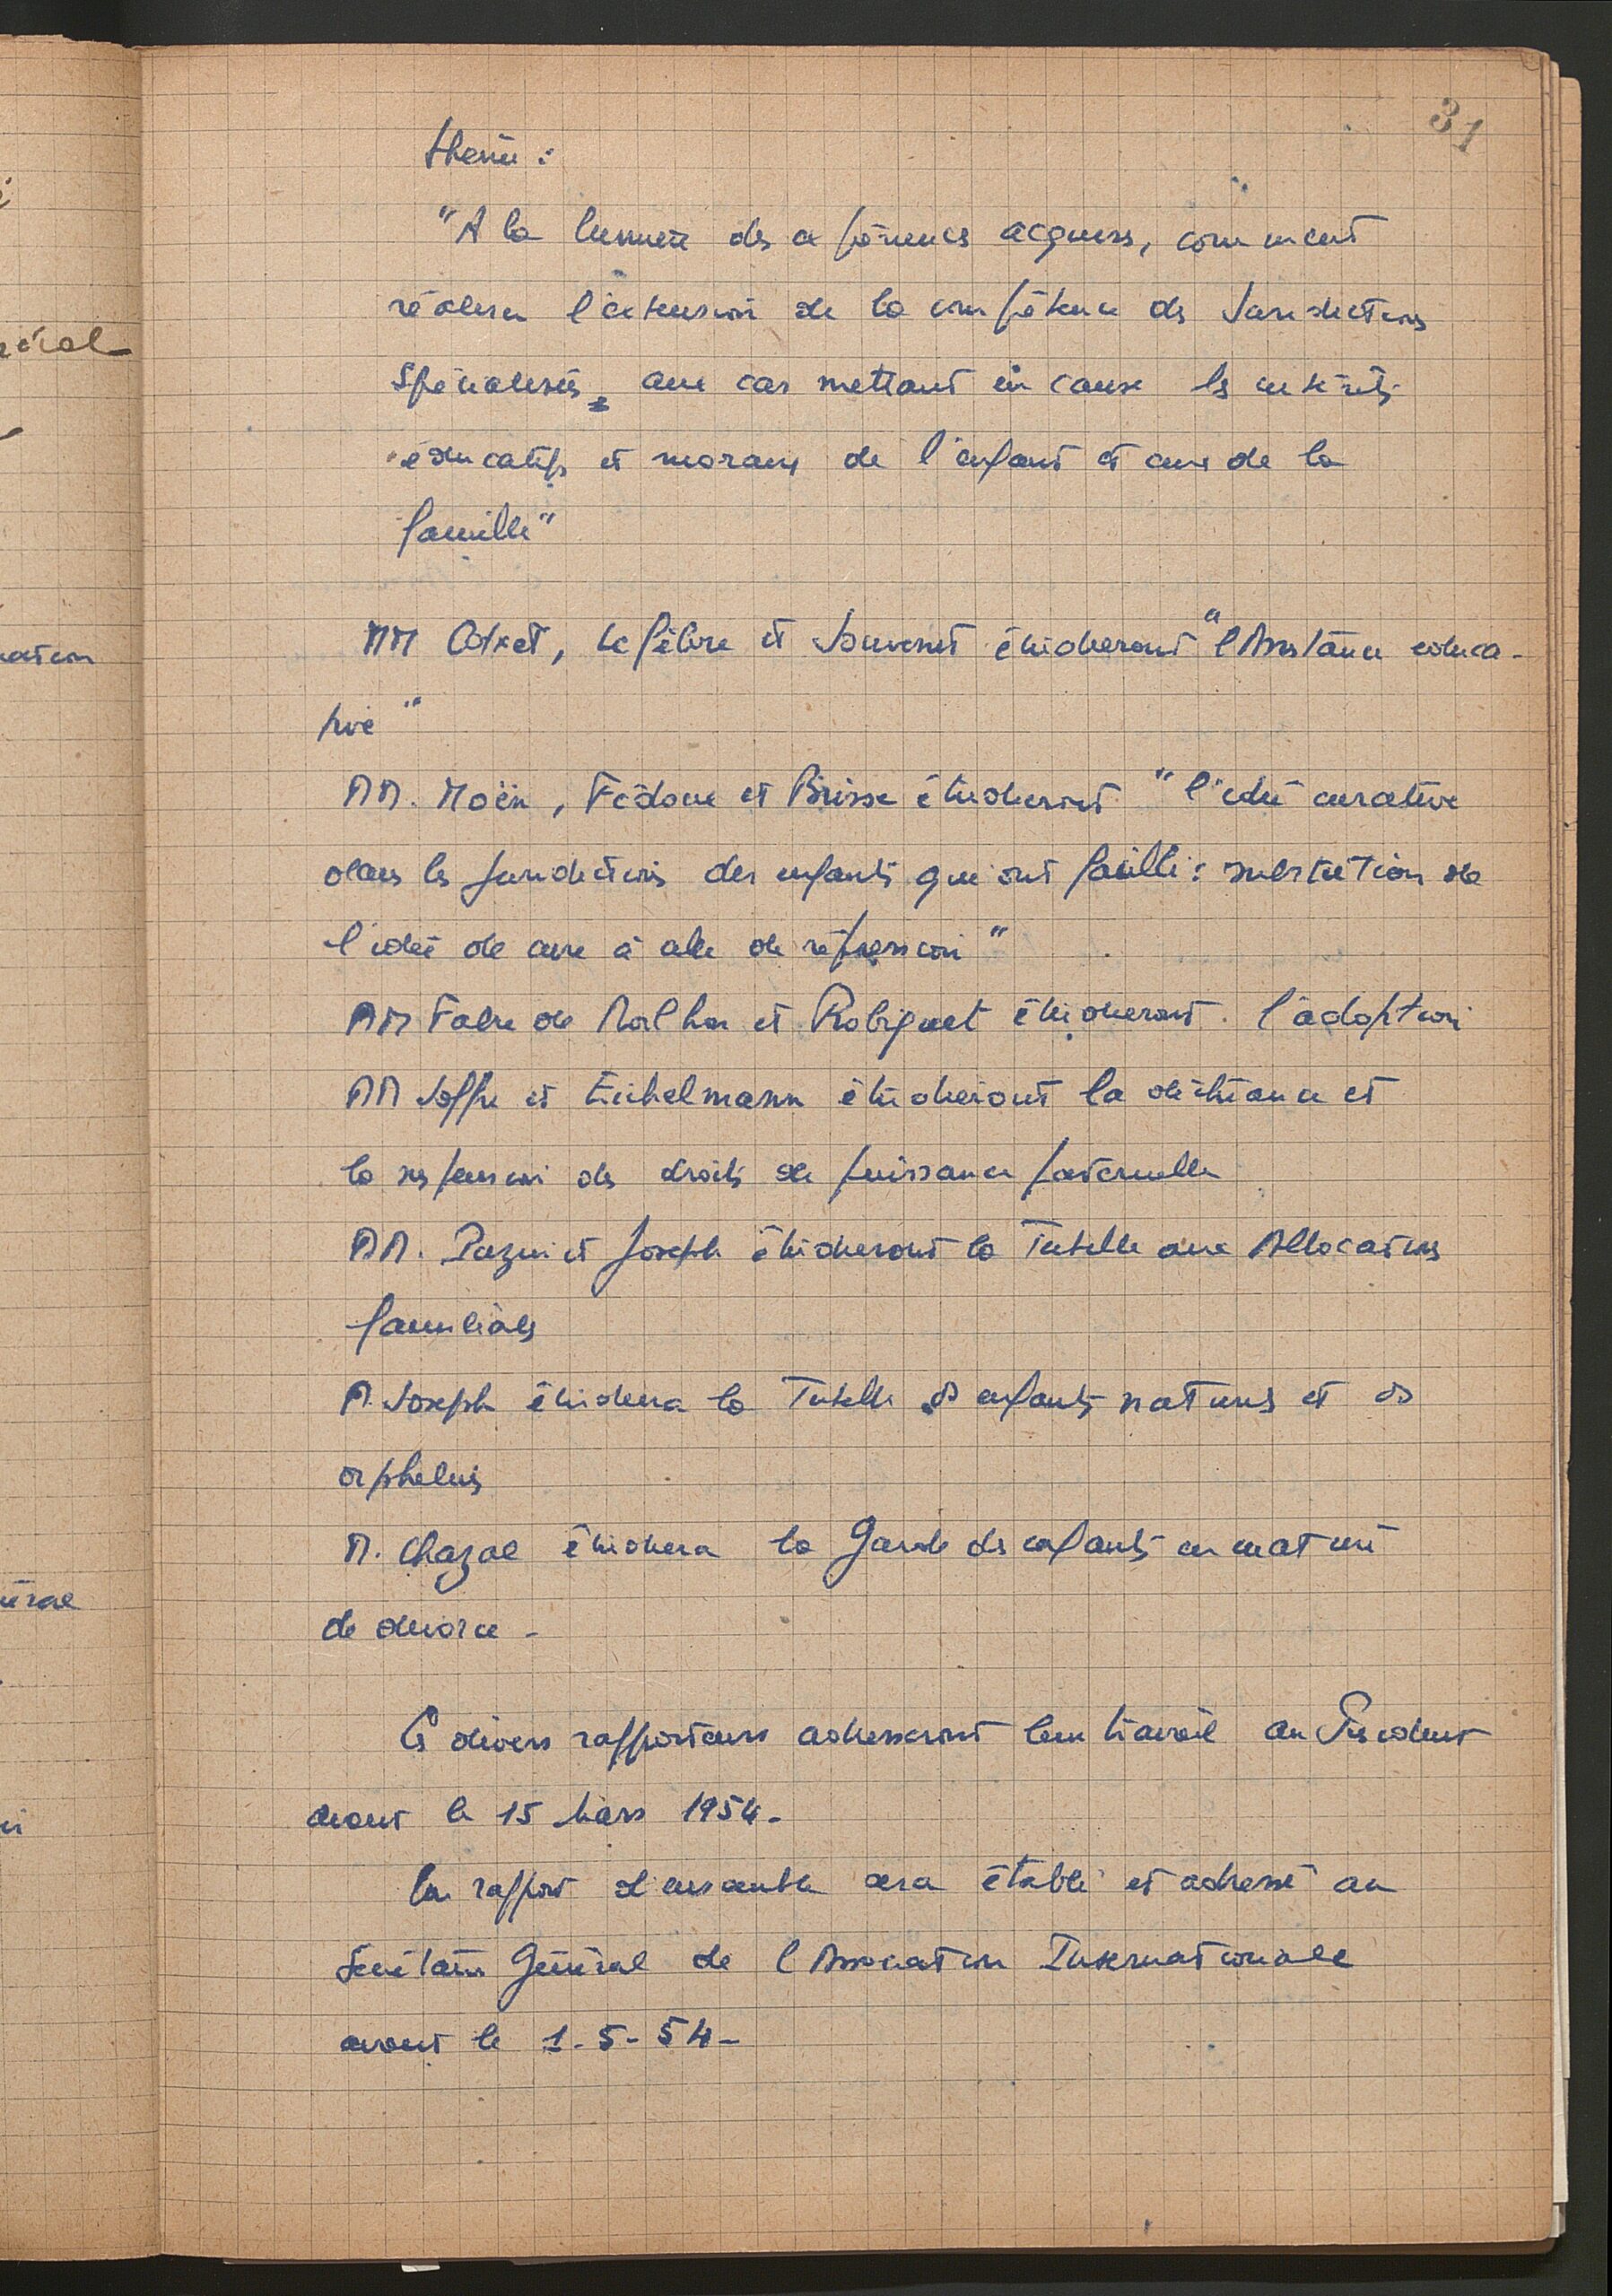 31
thème :
"A la lumière des expériences acquises, comment
réaliser l'extension de la compétence des Juridictions
Spécialisées aux cas mettant en cause les intérêts
éducatifs et moraux de l'enfant et ceux de la
famille"
MM Cotxet, Lefébvre et Jouvenet étudieront "l'Assistance éduca-
tive"
MM. Moën, Fédou et Brisse étudieront "l'idée curative
dans les juridictions des enfants qui ont failli : substitution de
l'idée de cure à celle de répression"
MM Fabre de et Robiquet étudieront l'adoption
MM Joffre et Eichelmann étudieront la déchéance et
la suspension des droits de puissance paternelle
MM. Puzin et Joseph étudieront la Tutelle aux Allocations
familiales
M. Joseph étudiera la Tutelle des enfants naturels et des
orphelins
M. Chazal étudiera la Garde des enfants en matière
de divorce -
Les divers rapporteurs adresseront leur travail au Président
avant le 15 Mars 1954 -
Un rapport d'ensemble sera établi et adressé au
Secrétaire Général de l'Association Internationale
avant le 1-5-54 -